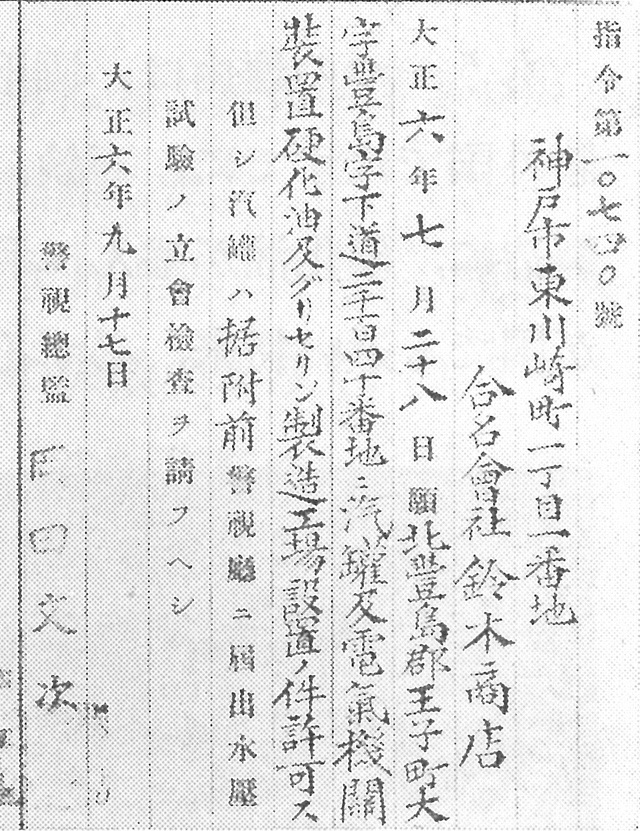 指令第一〇七四〇號
神戸市東川崎町一丁目一番地
合名會社鈴木商店
大正六年七月二十八日願北豊島郡王子町大
字豊島字下道二千百四十番地ニ汽罐及電氣機關
装置硬化油及グリセリン製造工場設置ノ件許可ス
但シ汽罐ハ据附前警視廳ニ届出水壓
試驗ノ立會檢査ヲ請フヘシ
大正六年九月十七日
警視總監 岡田文次